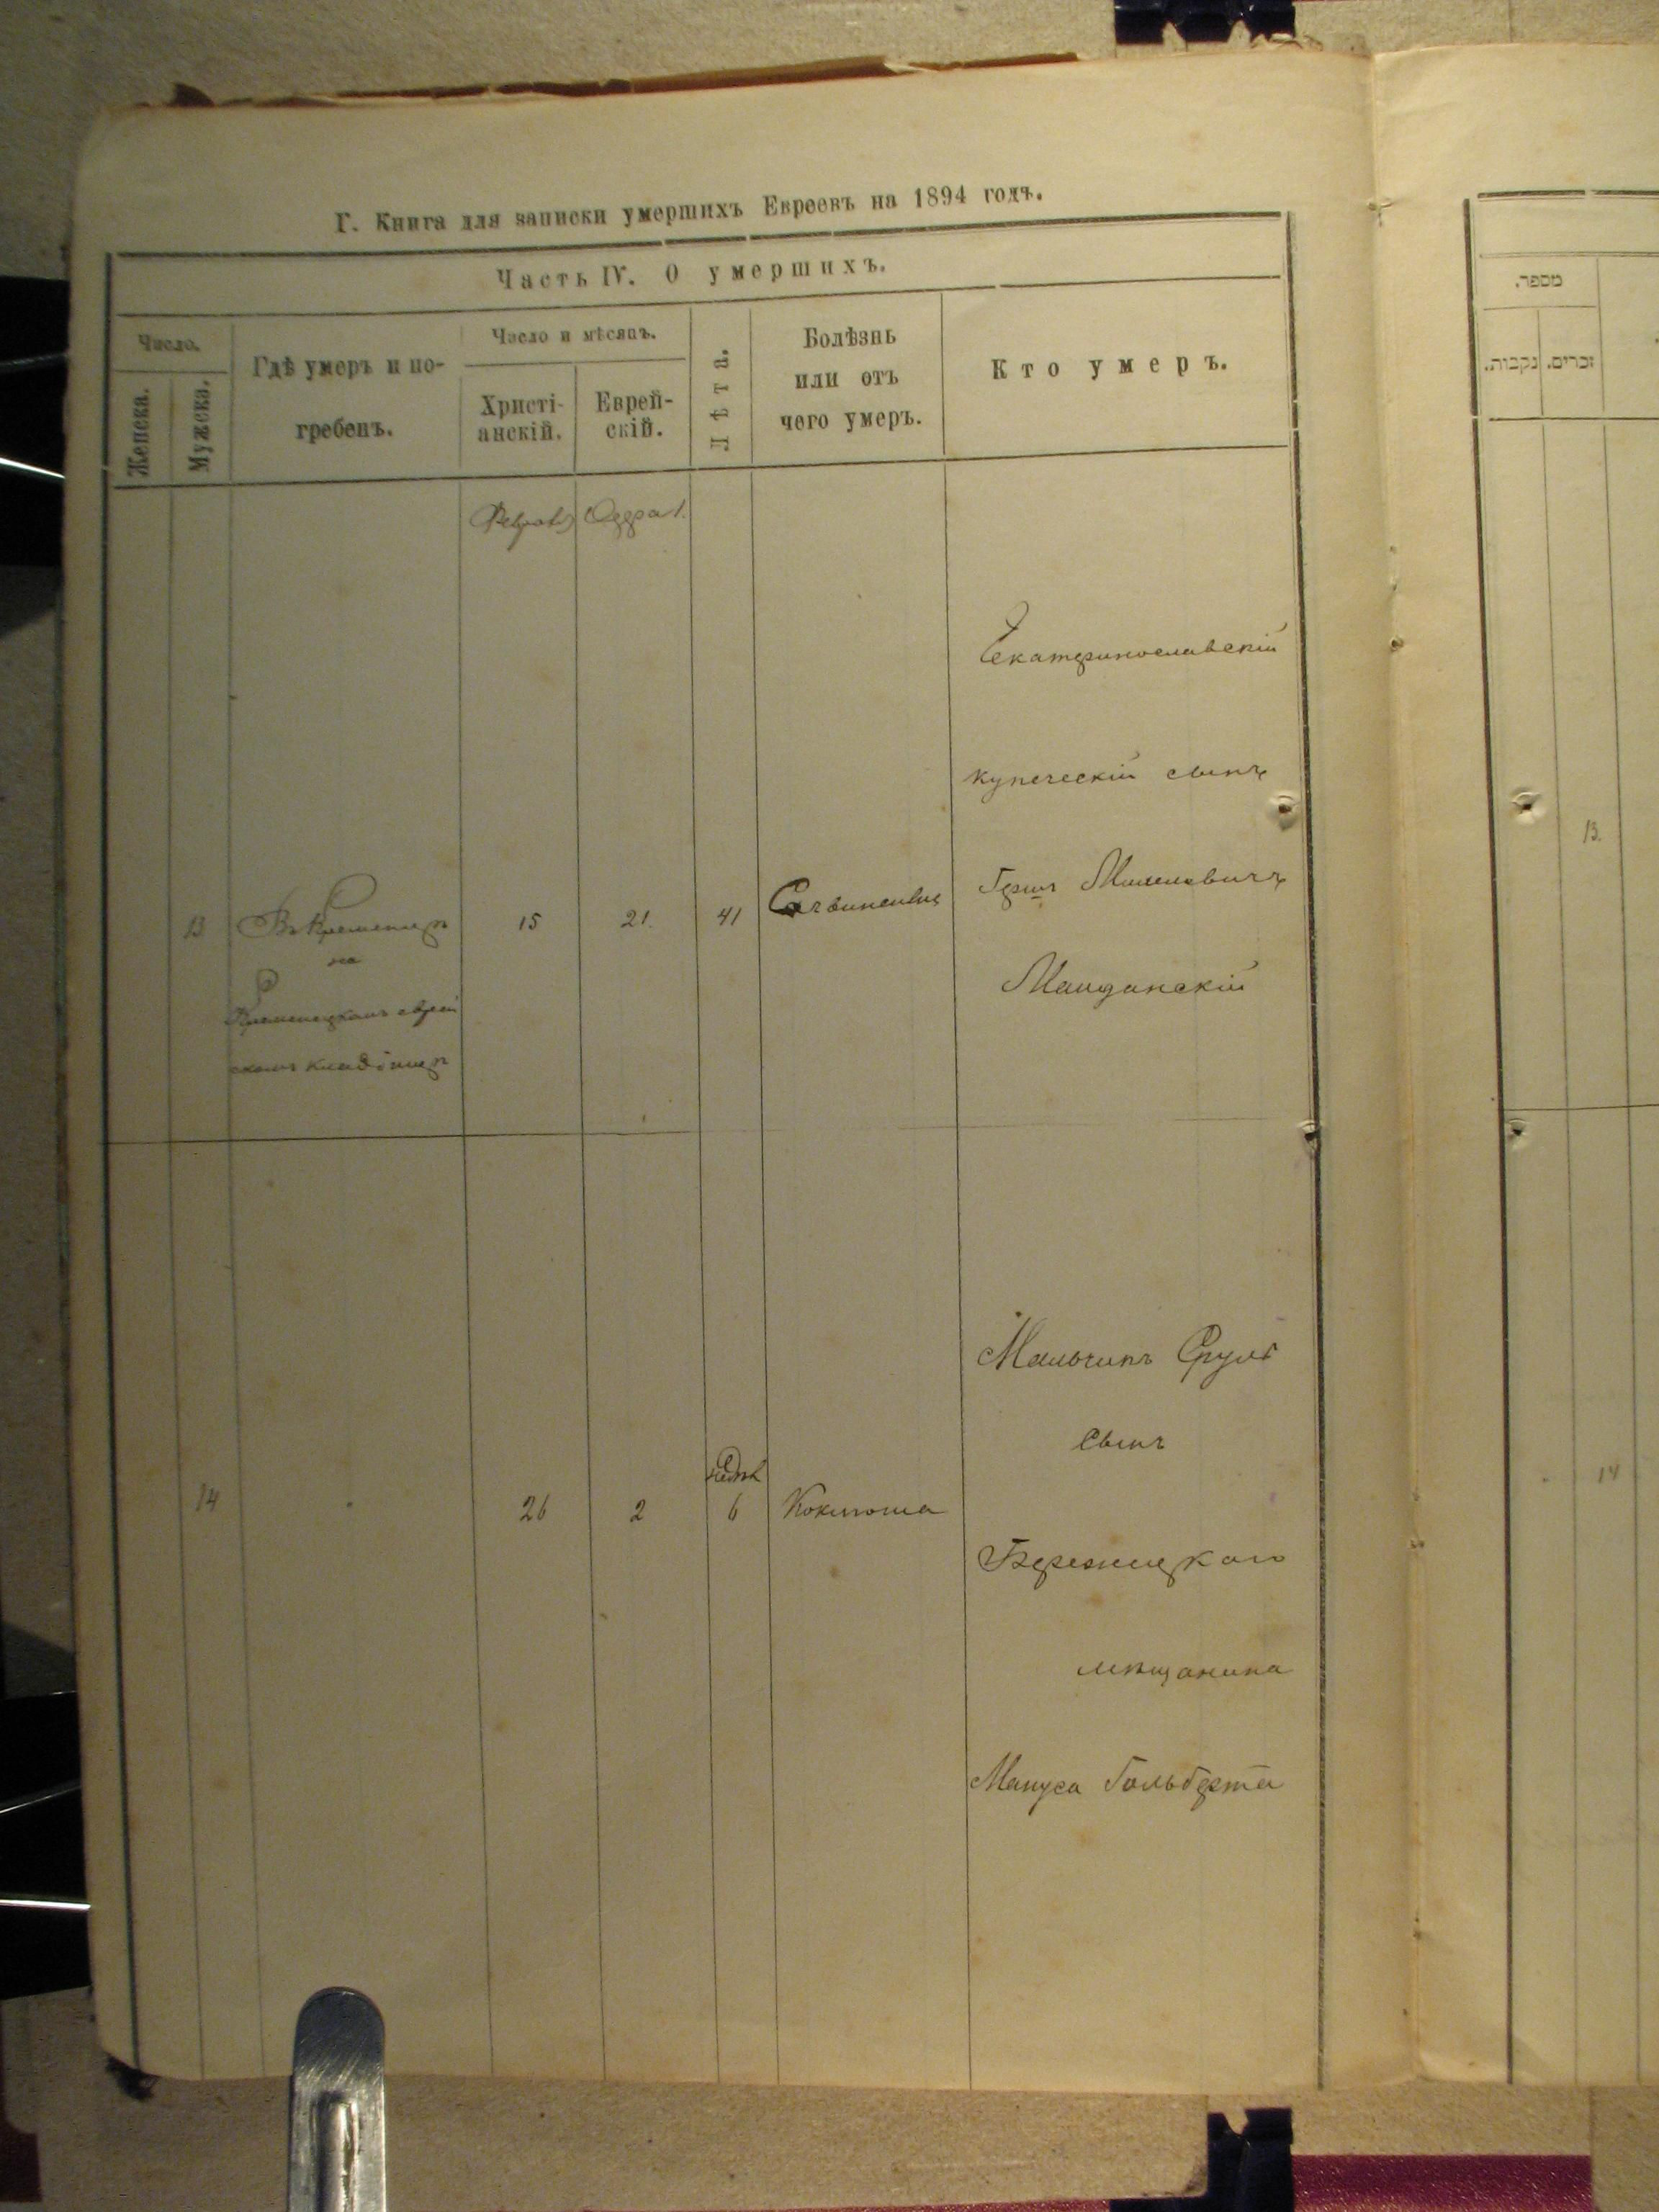 Г. Книга для записки умершихъ Евреевъ на 1894 годъ.
Часть IV. О умершихъ.
Число.
Женска.
Мужска.
Гдѣ умеръ и по-
гребенъ.
Число и мѣсяцъ.
Христі-
анскій.
Еврей-
скій.
Лѣта.
Болѣзнь
или отъ
чего умеръ.
Кто умеръ.
Адра 1.
13
Въ Кременцѣ
на
Кременецкомъ еврей
скомъ кладбищѣ
15
21.
41
Екатеринославскій
купеческій сынъ
Герш
Майданскій
14
26
2
6
Коклюша
Мальчикъ Сруль
сынъ
Бережецкого
мѣщанина
Мануса Гольберта
מספר.
זכרים.
נקבות.
13.
14